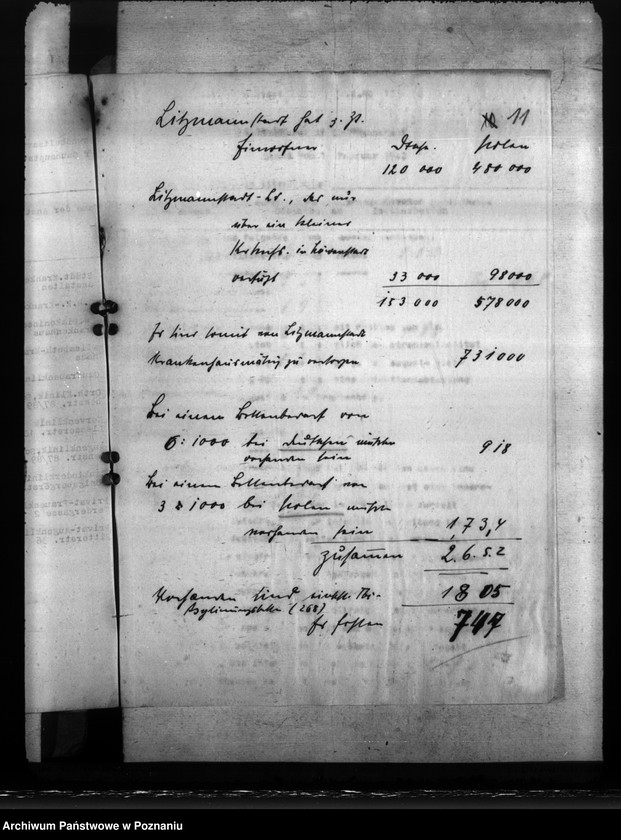 10 11
Litzmannstadt hat z. Zt.
Einwohner Dtsche. Polen
120 000 480 000
Litzmannstadt-Ld., das nur
über ein kleines
Krkhs. in Löwenstadt
verfügt 33 000 98000
153 000 578 000
Es sind somit von Litzmannstadt
krankenhausmäßig zu versorgen 731000
Bei einem Bettenbedarf von
6 : 1000 bei Deutschen müssten
vorhanden sein 918
Bei einem Bettenbedarf von
3 : 1000 bei Polen müssten
vorhanden sein 1734
zusammen 2652
Vorhanden sind einschl. (268) 1805
Es fehlen 747
Archiwum Państwowe w Poznaniu